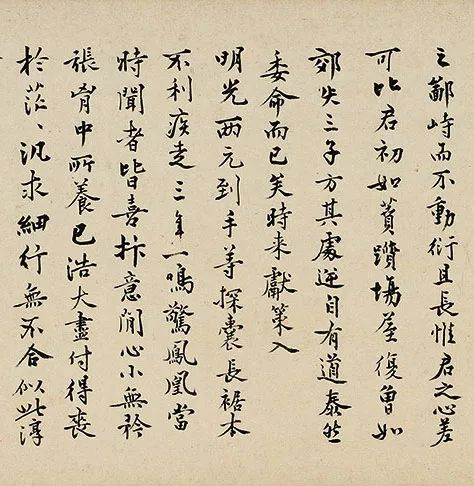 之鄙峙而不動衍且長惟君之心差
可比君初如蕡躓場屋復曾如
郊失三子方其處逆自有道泰然
委命而已矣時来獻策入
明光两元到手等探囊長裾本
不利疾走三年一鳴驚鳳凰當
時聞者皆喜抃意閒心小無矜
張胷中所養已浩大盡付得喪
於茫〻汎求細行無不合似此淳